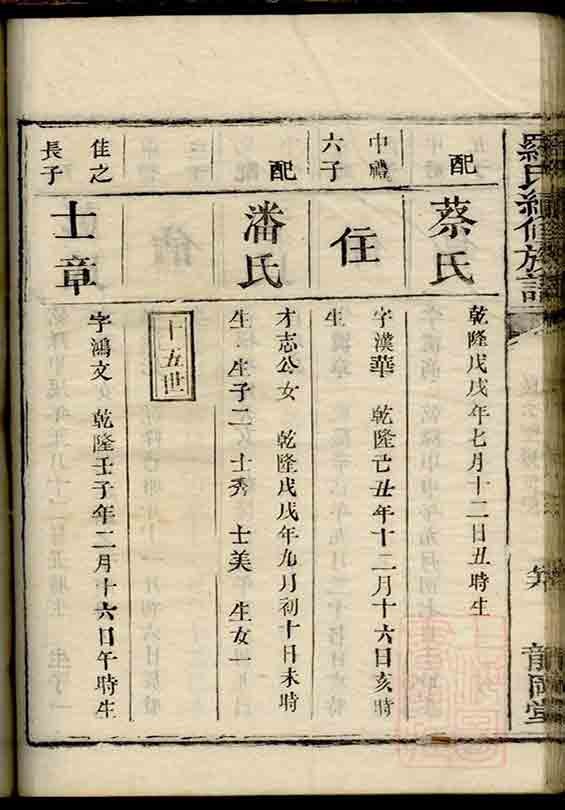 羅氏續修族譜
龍岡堂
配
蔡氏
乾隆戊戌年七月十二日丑時生
中禮
六子
住
字漢華 乾隆己丑年十二月十六日亥時
生
配
潘氏
才志公女 乾隆戊戌年九月初十日未時
生 生子二 士秀 士美 生女一
十五世
佳之
長子
士章
字鴻文 乾隆壬子年二月十六日午時生